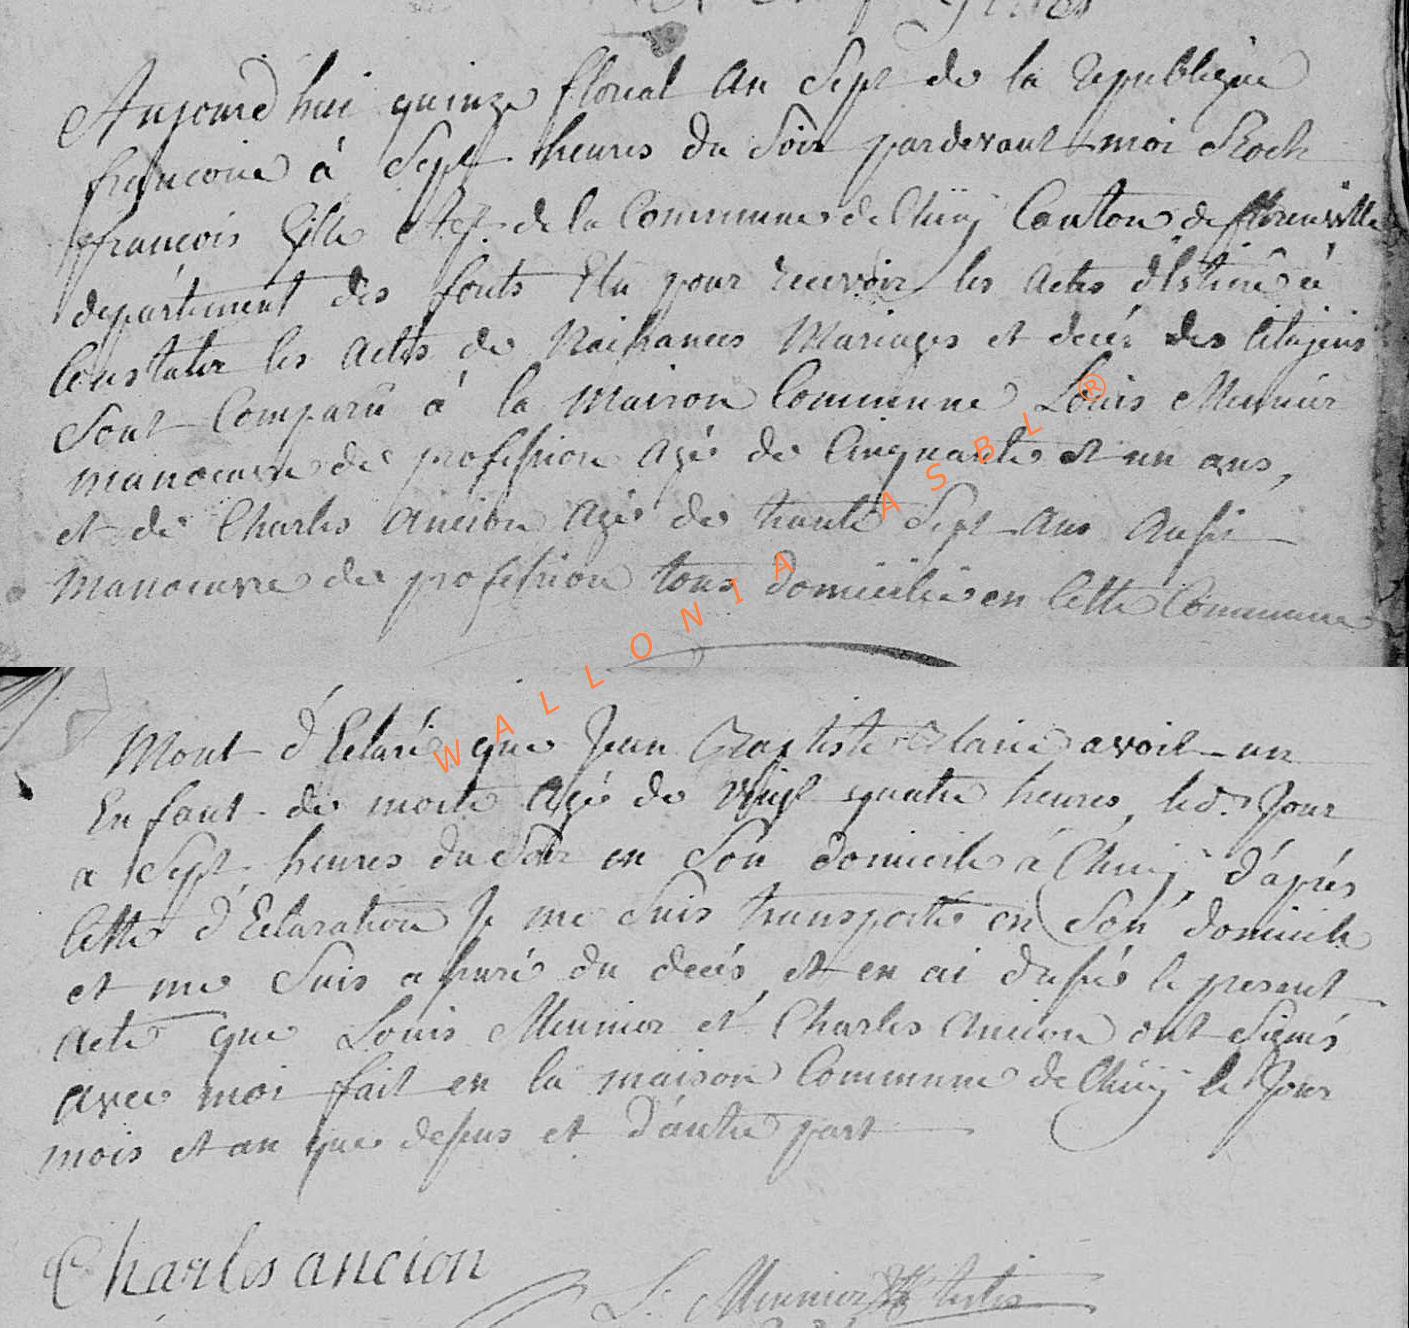 Aujourd'hui quinze floreal an Sept de la republique
francoise à Sept heures du Soir pardevant moi Roch
françois Gille de la Commune de Chiny Canton de florenville
departement des forets Elu pour recevoir les actes à
Constater les actes de Naissances Mariages et decés des Citoyens
Sont Comparu à la Maison Commune Louis Meunier
manoeuvre de profession agé de Cinquante et un ans,
et de Charles Ancion agé de trante Sept ans aussi
Manoeuvre de profession tous domicilié en Cette Commune
Mont d'Eclaré que Jean Baptiste avoit un
Enfant de morte agé de vingt quatre heures, led. Jour
a Sept heures du Soir en Son domicile à Chiny, d'aprés
Cette d'Eclaration Je me Suis transporté en Son domicile
et me Suis assuré du decés, et en ai dressé le present
acte que Louis Meunier et Charles Ancion ont Signés
avec moi fait en la maison Commune de Chiny le Jour
mois et an que dessus et d'autre part
Charles ancion
L. Meunier
WALLONIA ASBL ®